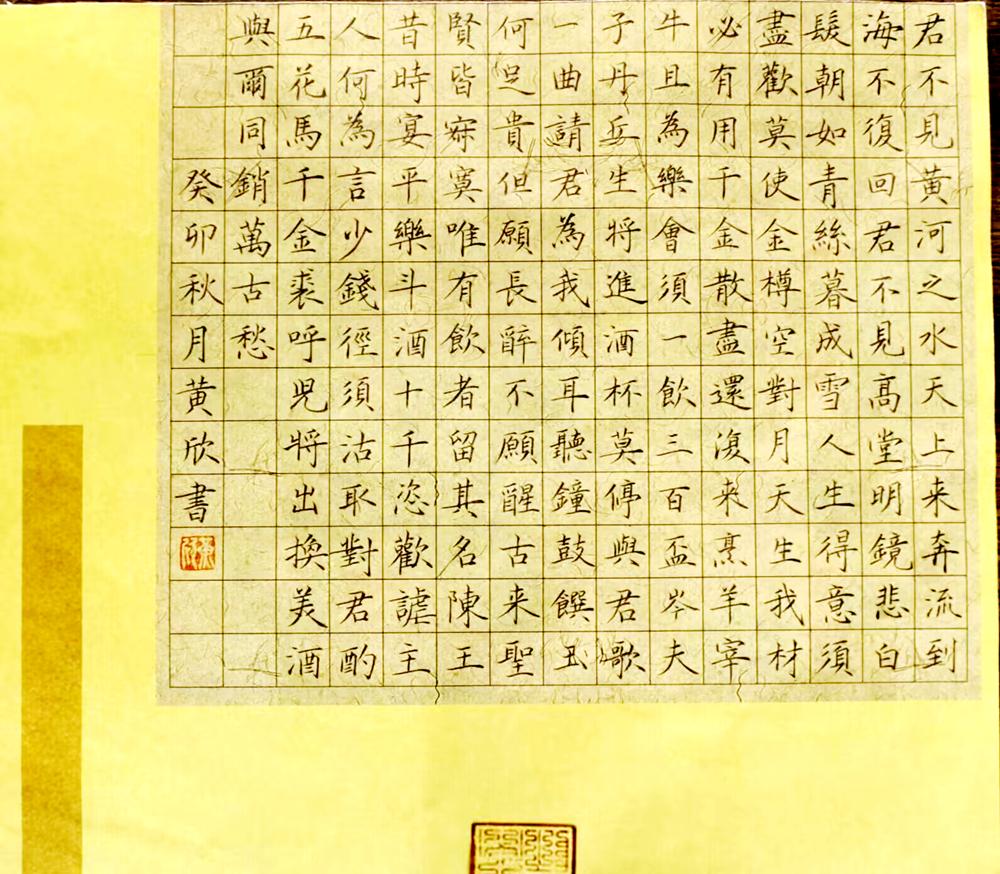 君不見黃河之水天上来奔流到
海不復回君不見高堂明鏡悲白
髮朝如青絲暮成雪人生得意須
盡歡莫使金樽空對月天生我材
必有用千金散盡還復来烹羊宰
牛且為樂會須一飲三百盃岑夫
子丹丘生將進酒杯莫停與君歌
一曲請君為我傾耳聽鐘鼓饌玉
何足貴但願長醉不願醒古来聖
賢皆寂寞唯有飲者留其名陳王
昔時宴平樂斗酒十千恣歡謔主
人何為言少錢徑須沽取對君酌
五花馬千金裘呼児將出換美酒
與爾同銷萬古愁
癸卯秋月黃欣書